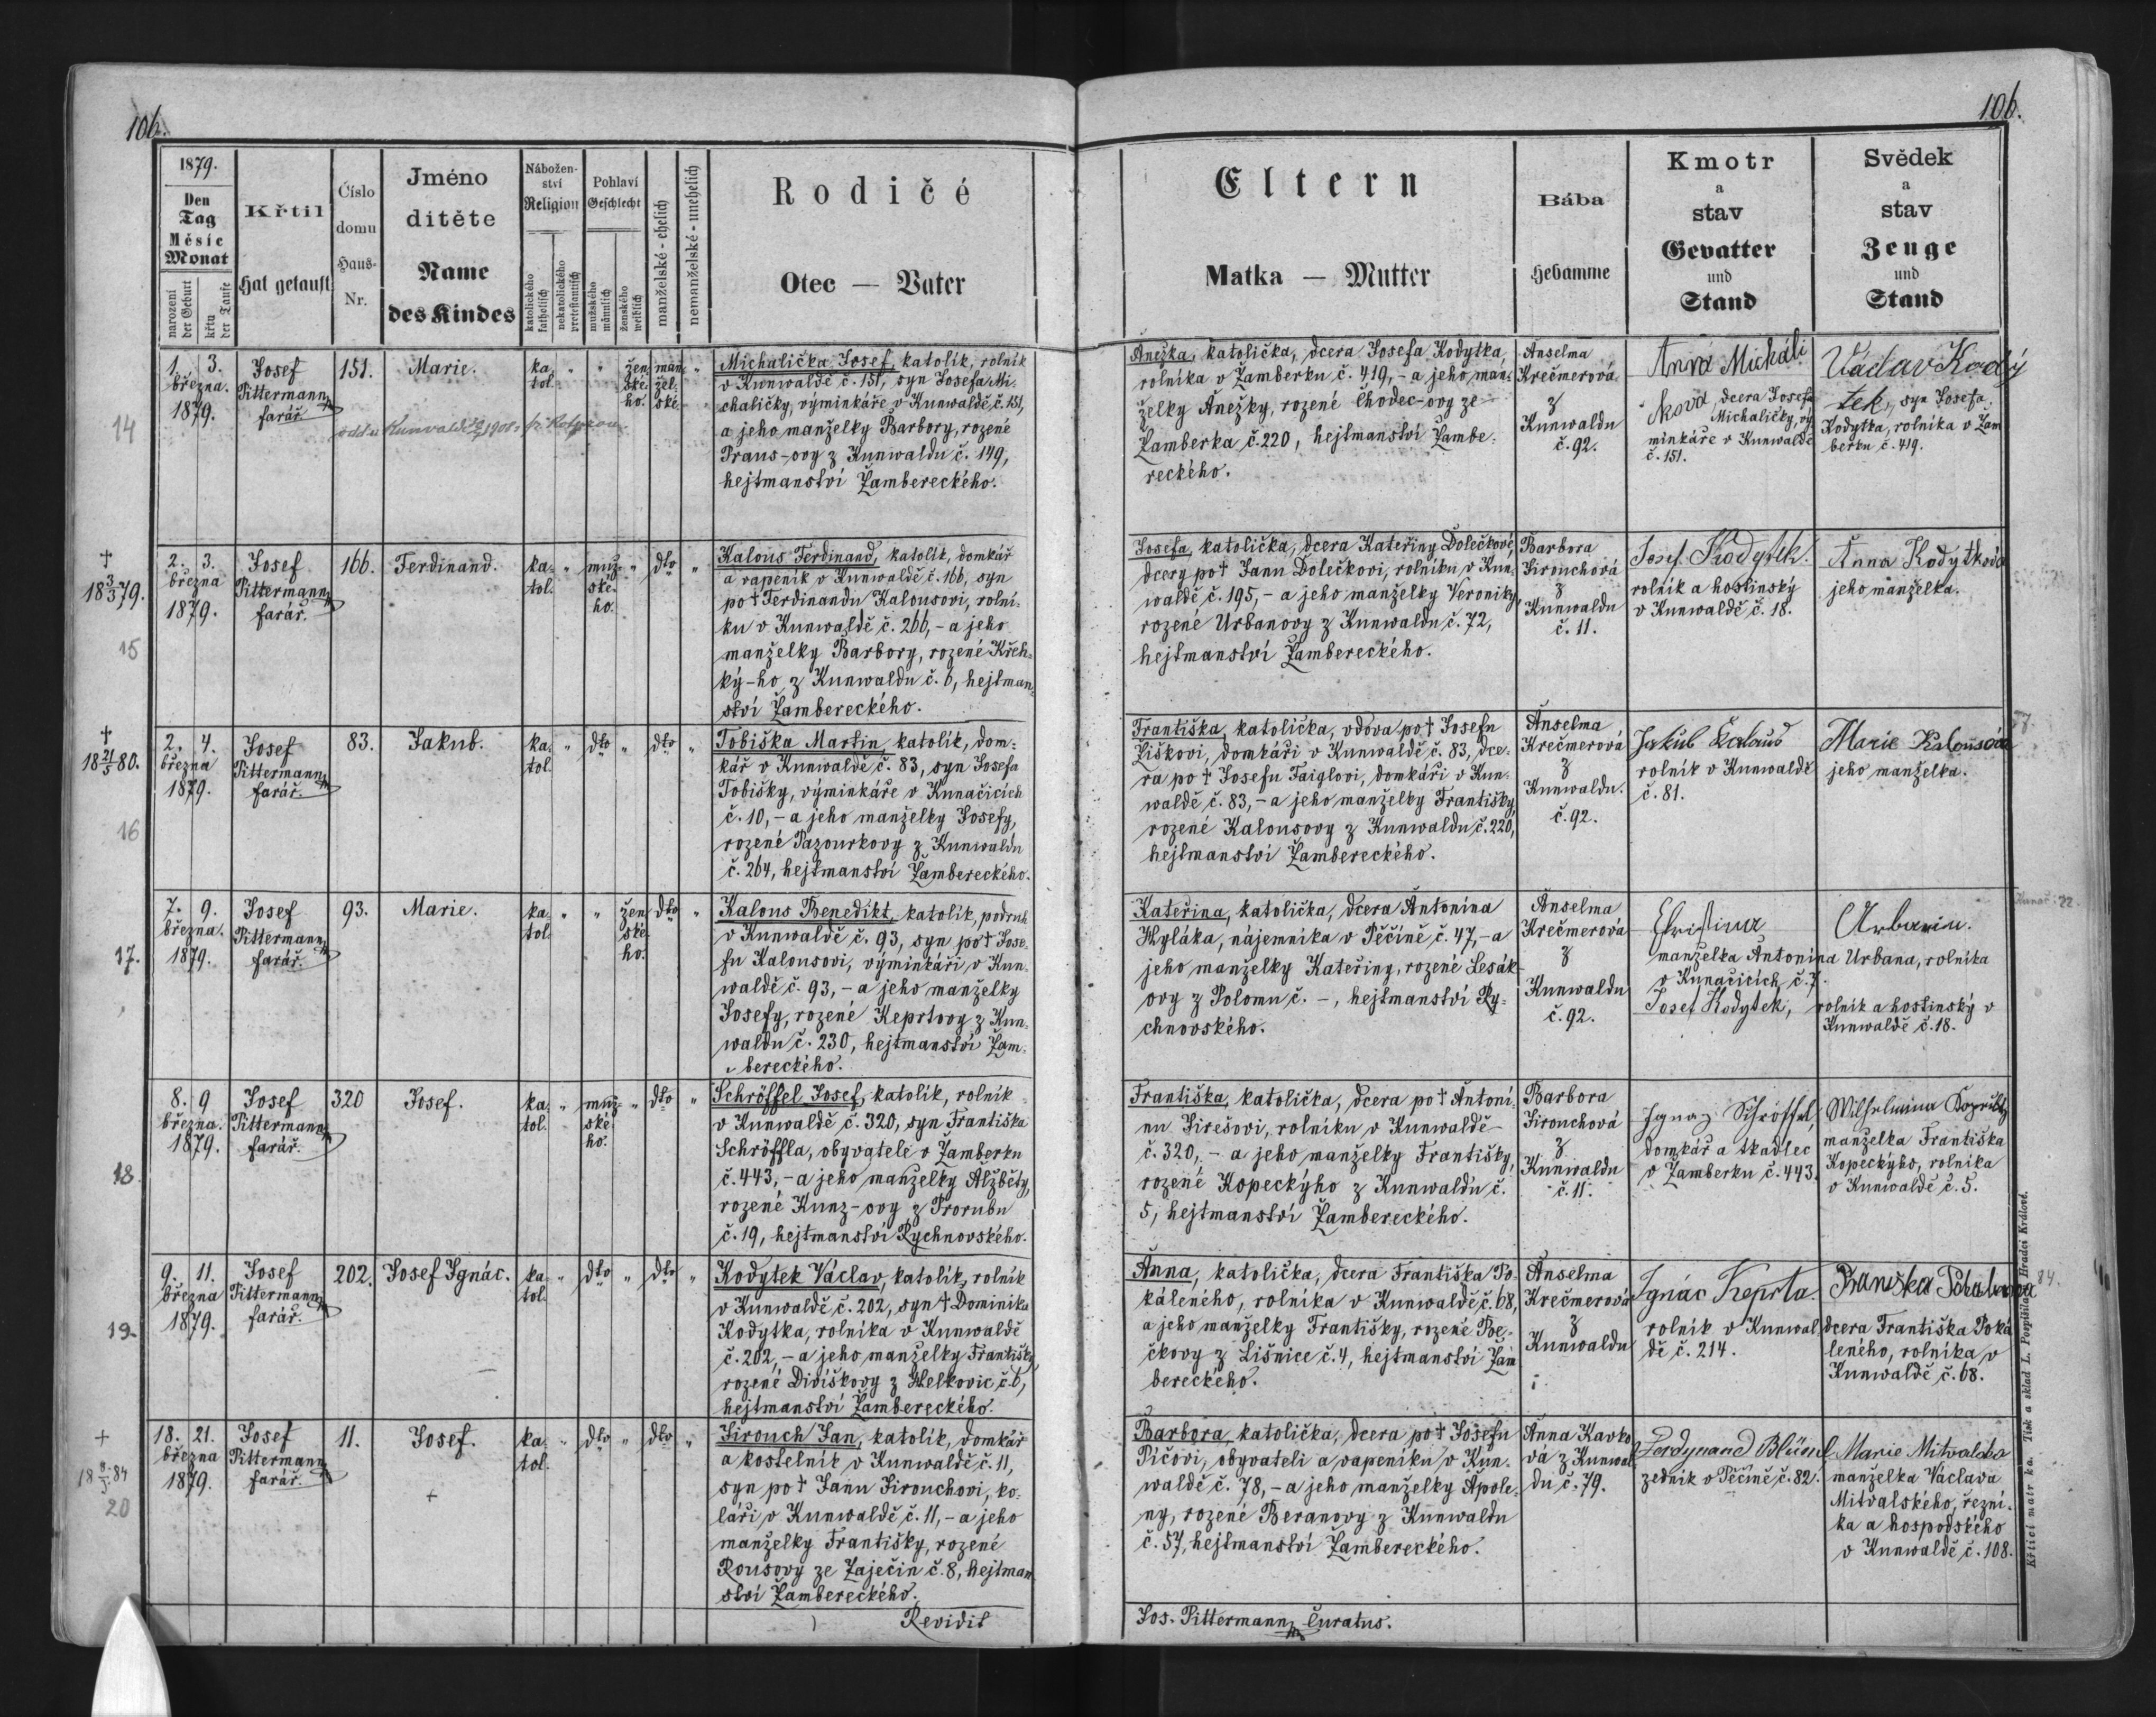 106.
106.
1879.
Den
Tag
Měsíc
Monat
narození
der Geburt
křtu
der Taufe
Křtil
Hat getauft
Číslo
domu
Haus-
Nr.
Jméno
ditěte
Name
des Kindes
Nábožen-
ství
Religion
katolického
katholisch
nekatolického
protestantisch
Pohlaví
Geschlecht
mužského
männlich
ženského
weiblich
manželské - ehelich
nemanželské - unehelich
Rodičé
Otec — Vater
Eltern
Matka — Mutter
Bába
Hebamme
Kmotr
a
stav
Gevatter
und
Stand
Svědek
a
stav
Zeuge
und
Stand
14
1. 3.
března.
1879.
Josef
Pittermann
farář.
151.
Marie.
ka-
tol.
žen-
ské-
ho.
man-
žel-
ské.
Michalička Josef, katolík, rolník
v Kunwaldě č. 151, syn Josefa Mi-
chaličky, výminkáře v Kunwaldě č. 151,
a jeho manželky Barbory, rozené
Praus-ovy z Kunwaldu č. 149,
hejtmanství Žambereckého.
Anežka, katolička, dcera Josefa Kodytka,
rolníka v Žamberku č. 419, - a jeho man-
želky Anežky, rozené Chodec-ovy ze
Žamberka č. 220, hejtmanství Žambe-
reckého.
Anselma
Krečmerová
z
Kunwaldu
č. 92.
Anna Micháli
čkova, dcera Josefa
Michaličky, vý-
minkáře v Kunwaldě
č. 151.
Václav Kody
tek, syn Josefa
Kodytka, rolníka v Žam
berku č. 419.
† 18 3/3 79.
15
2. 3.
března
1879.
Josef
Pittermann
farář.
166.
Ferdinand.
ka-
tol.
muž-
ské-
ho.
dto
Kalous Ferdinand, katolík, domkář
a vapeník v Kunwaldě č. 166, syn
po † Ferdinandu Kalousovi, rolní-
ku v Kunwaldě č. 266, - a jeho
manželky Barbory, rozené Křeh-
ký-ho z Kunwaldu č. 6, hejtman-
ství Žambereckého.
Josefa, katolička, dcera Kateřiny Dolečkové,
dcery po † Janu Dolečkovi, rolníku v Kun-
waldě č. 195, - a jeho manželky Veroniky,
rozené Urbanovy z Kunwaldu č. 72,
hejtmanství Žambereckého.
Barbora
Jirouchová
z
Kunwaldu
č. 11.
Josef Kodytek.
rolník a hostinský
v Kunwaldě č. 18.
Anna Kodytková
jeho manželka.
† 18 21/5 80.
16
2. 4.
března
1879.
Josef
Pittermann
farář.
83.
Jakub.
ka-
tol.
dto
dto
Tobiška Martin, katolík, dom-
kář v Kunwaldě č. 83, syn Josefa
Tobišky, výminkáře v Kunačicích
č. 10, - a jeho manželky Josefy,
rozené Pazourkovy z Kunwaldu
č. 264, hejtmanství Žambereckého.
Františka, katolička, vdova po † Josefu
Liškovi, domkáři v Kunwaldě č. 83, dce-
ra po † Josefu Faiglovi, domkáři v Kun-
waldě č. 83, - a jeho manželky Františky,
rozené Kalousovy z Kunwaldu č. 220,
hejtmanství Žambereckého.
Anselma
Krečmerová
z
Kunwaldu.
č. 92.
Jakub Kalous
rolník v Kunwaldě
č. 81.
Marie Kalousová
jeho manželka.
17.
7. 9.
března.
1879.
Josef
Pittermann
farář.
93.
Marie.
ka-
tol.
žen-
ské-
ho.
dto
Kalous Benedikt, katolík, podruh
v Kunwaldě č. 93, syn po † Jose-
fu Kalousovi, výminkáři v Kun-
waldě č. 93, - a jeho manželky
Josefy, rozené Keprtovy z Kun-
waldu č. 230, hejtmanství Žam-
bereckého.
Kateřina, katolička, dcera Antonína
Hyláka, nájemníka v Pěčíně č. 47, - a
jeho manželky Kateřiny, rozené Lesák-
ovy z Polomu č. -, hejtmanství Ry-
chnovského.
Anselma
Krečmerová
z
Kunwaldu
č. 92.
Christina Urbanin.
manželka Antonína Urbana, rolníka
v Kunačicích č. 7.
Josef Kodytek, rolník a hostinský v
Kunwaldě č. 18.
18.
8. 9
března.
1879.
Josef
Pittermann
farář.
320
Josef.
ka-
tol.
muž-
ské-
ho.
dto
Schröffel Josef, katolík, rolník
v Kunwaldě č. 320, syn Františka
Schröffla, obyvatele v Žamberku
č. 443, - a jeho manželky Alžběty,
rozené Kunz-ovy z Prorubu
č. 19, hejtmanství Rychnovského.
Františka, katolička, dcera po † Antoní-
nu Jirešovi, rolníku v Kunwaldě
č. 320, - a jeho manželky Františky,
rozené Kopeckýho z Kunwaldu č.
5, hejtmanství Žambereckého.
Barbora
Jirouchová
z
Kunwaldu
č. 11.
Ignaz Schröffel,
domkář a tkadlec
v Žamberku č. 443.
Wilhelmina
manželka Františka
Kopeckýho, rolníka
v Kunwaldě č. 5.
19.
9. 11.
března
1879.
Josef
Pittermann
farář.
202.
Josef Ignác.
ka-
tol.
dto
dto
Kodytek Václav, katolík, rolník
v Kunwaldě č. 202, syn † Dominika
Kodytka, rolníka v Kunwaldě
č. 202, - a jeho manželky Františky,
rozené Divíškovy z Helkovic č. 6,
hejtmanství Žambereckého.
Anna, katolička, dcera Františka Po-
káleného, rolníka v Kunwaldě č. 68,
a jeho manželky Františky, rozené Pe-
čkovy z Lišnice č. 4, hejtmanství Žam
bereckého.
Anselma
Krečmerová
z
Kunwaldu
Ignác Keprta.
rolník v Kunwal
dě č. 214.
dcera Františka Poká
leného, rolníka v
Kunwaldě č. 68.
20
18. 21.
března
1879.
Josef
Pittermann
farář.
11.
Josef.
ka-
tol.
dto
dto
Jirouch Jan, katolík, domkář
a kostelník v Kunwaldě č. 11,
syn po † Janu Jirouchovi, ko-
láři v Kunwaldě č. 11, - a jeho
manželky Františky, rozené
Rousovy ze Zaječin č. 8, hejtman
ství Žambereckého.
Barbora, katolička, dcera po † Josefu
Píčovi, obyvateli a vapeníku v Kun-
waldě č. 78, - a jeho manželky Apole-
ny, rozené Beranovy z Kunwaldu
č. 57, hejtmanství Žambereckého.
Anna Kavko
vá z Kunwal
du č. 79.
Ferdynand
zedník v Pěčíně č. 82.
Marie Mitvalská
manželka Václava
Mitvalského, řezní-
ka a hospodského
v Kunwaldě č. 108.
Revidit
Jos. Pittermann Curatus.
Křticí matrika. Tisk a sklad L. Pospíšila, Hradci Králové.